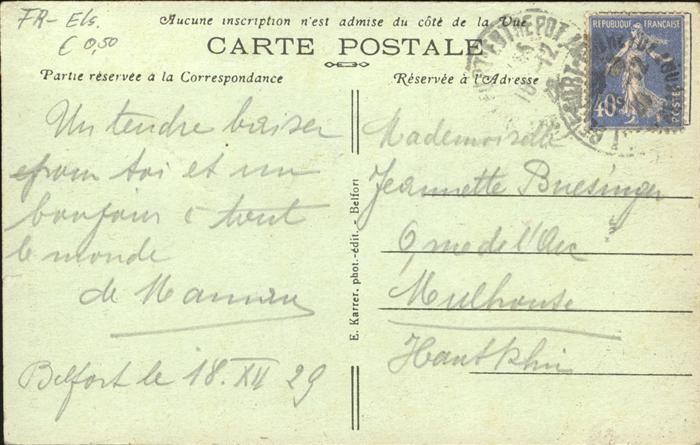 FR- Els.
€ 0,50
Aucune inscription n'est admise du côté de la Vue
CARTE POSTALE
Partie réservée à la Correspondance
Réservée à l'Adresse
RÉPUBLIQUE FRANÇAISE
40c
POSTES
Un tendre baiser
pour toi et un
bonjour à tout
le monde
de Maman
Belfort le 18. XII 29
E. Karrer, phot.-édit. - Belfort
Mademoiselle
Jeannette Buesinger
9, rue de l'Arc
Mulhouse
Haut Rhin